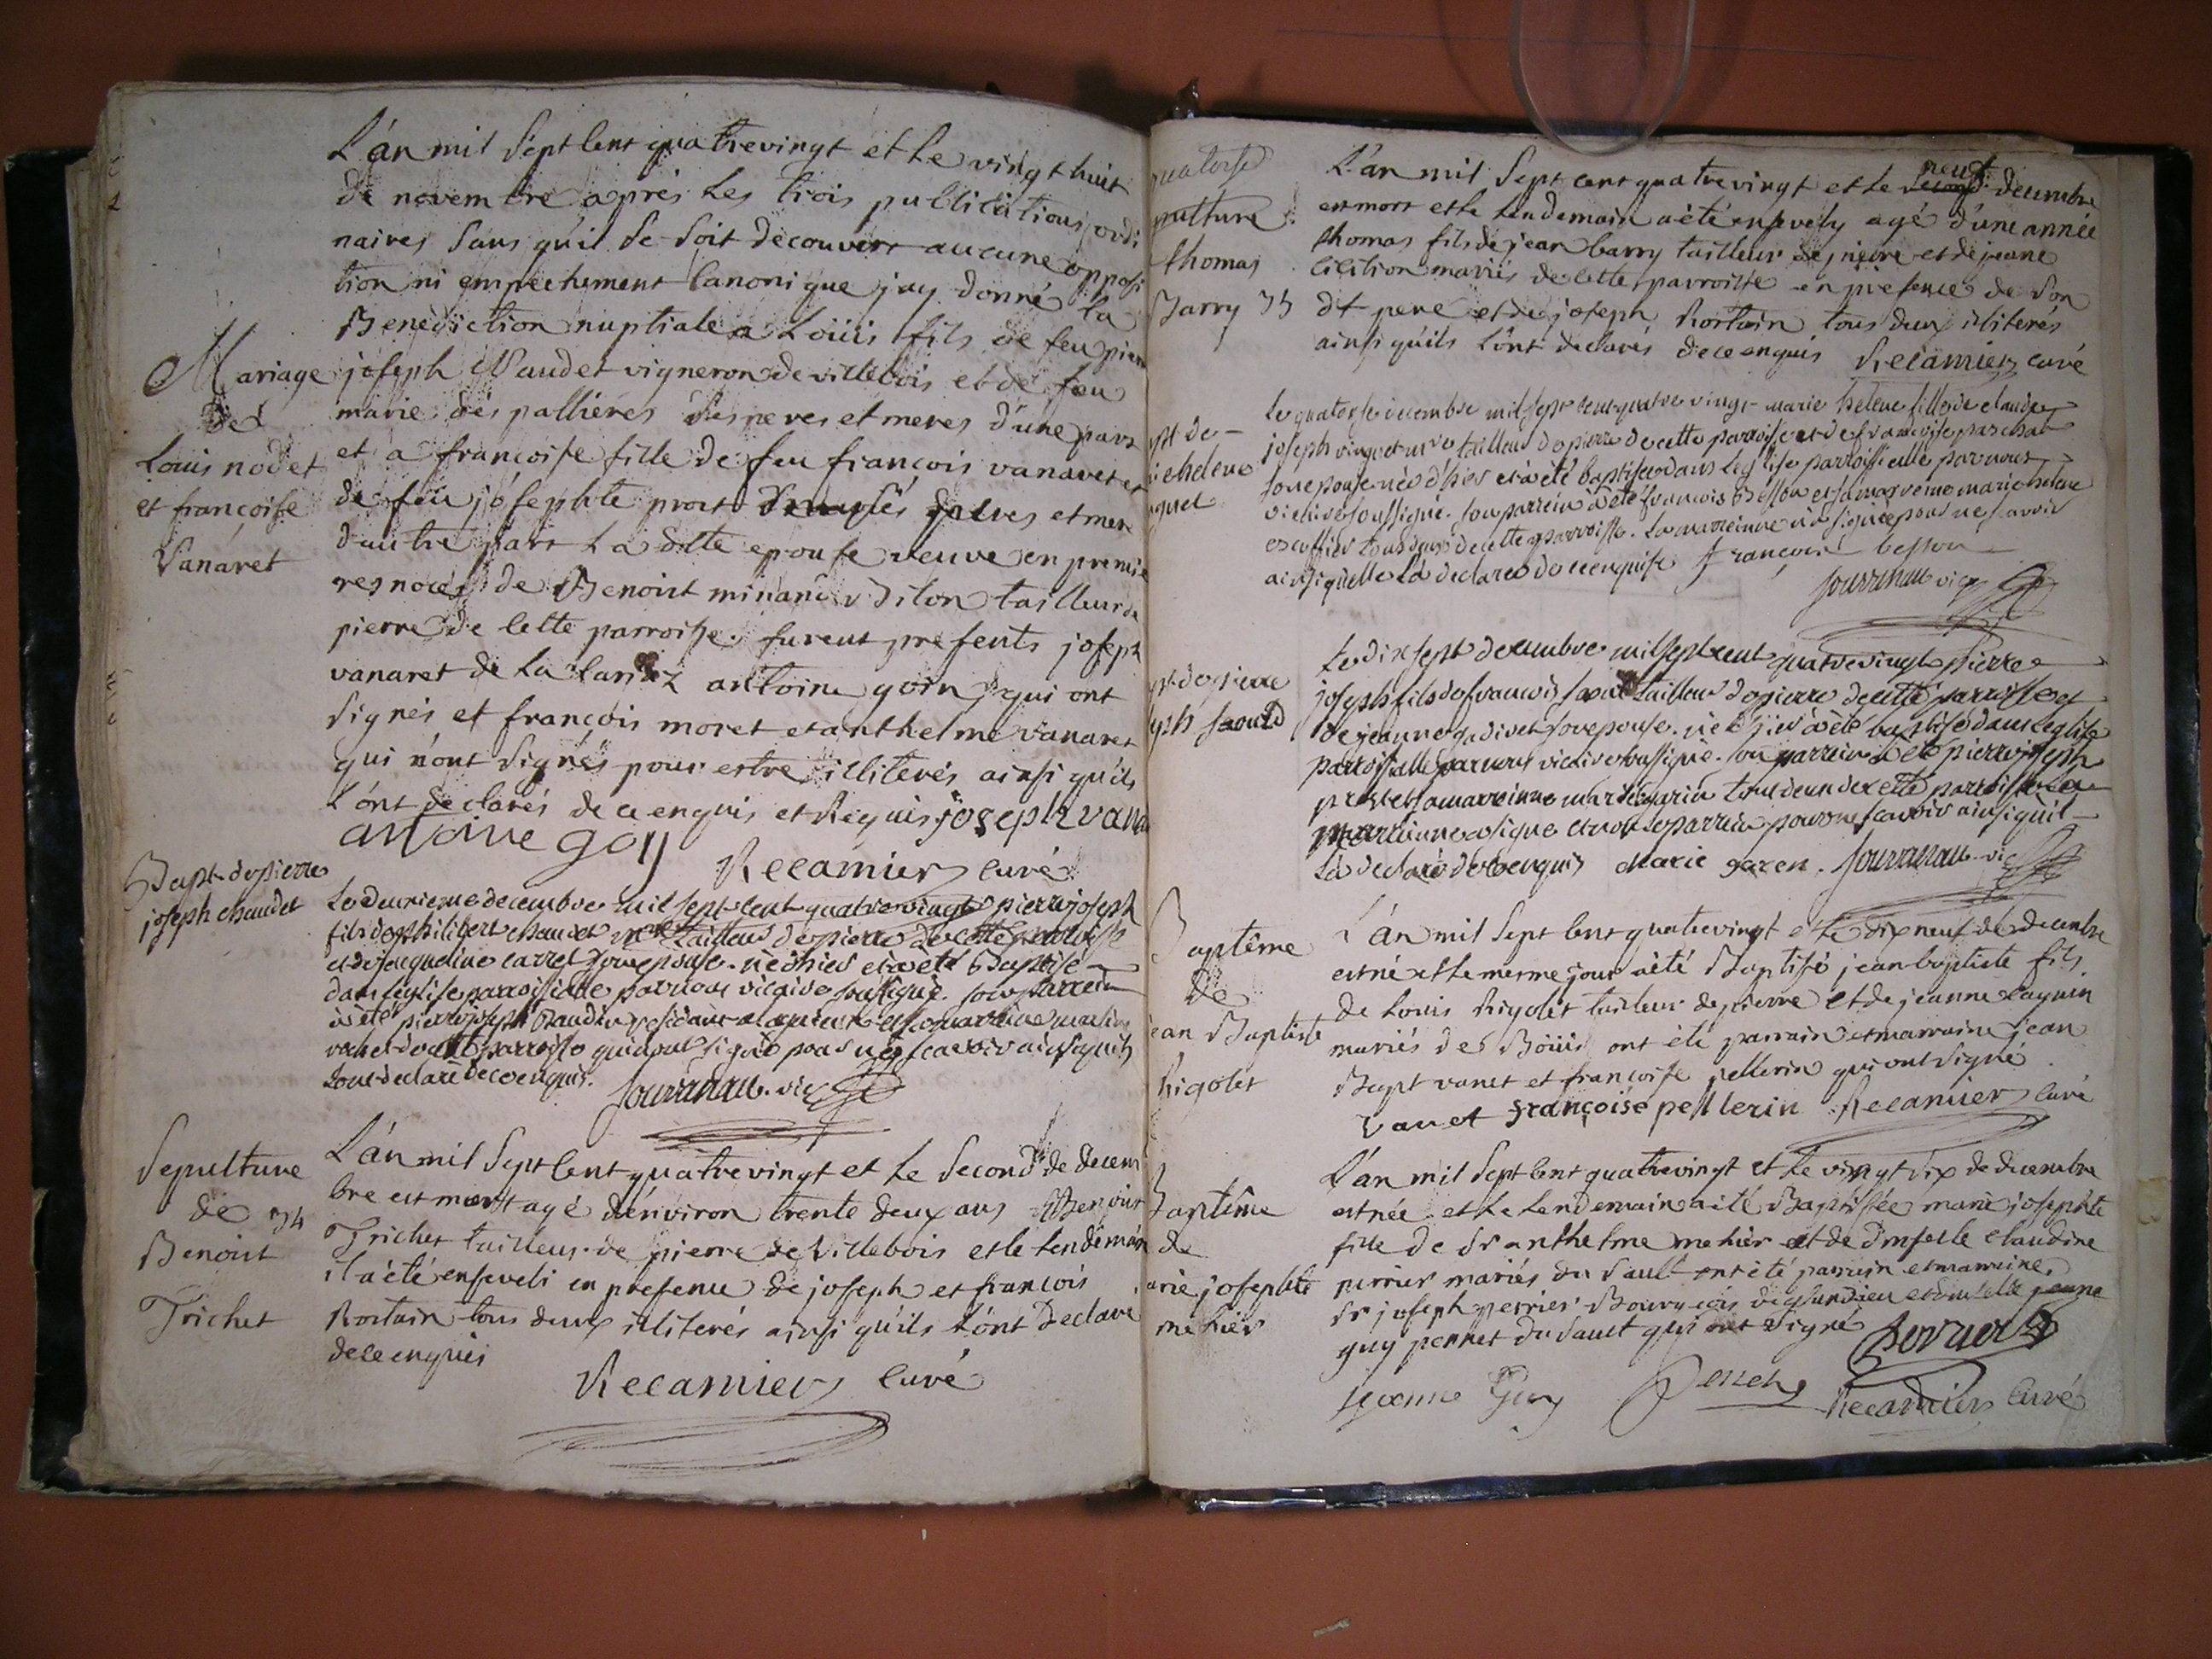 L'án mil Sept Cent quatrevingt et le vingt huit
de novembre aprés les trois publications ordi
naires sans qu'il se soit découvert aucune opposi
tion ni empechement Canonique j'ay donné la
Benediction nuptiale a Loüis fils de feu pierre
Mariage
des
Louis nodet
et françoise
Vanaret
joseph Naudet vigneron de villebois et de feu
marie dés pallieres ses peres et meres d'une part
et a françoise fille de feu françois vanaret et
de feu joséphte prost ses peres et mere
d'autre part La ditte epouse veuve en premie
res noces de Benoist minand tailleur de
pierre de Cette parroisse. furent presents joseph
vanaret de La antoine goin qui ont
Signés et françois moret et anthelme vanaret
qui n'ont Signés pour estre illiterés ainsi qu'ils
L'ónt declarés de ce enquis et Requis joseph vana
antoine goy
Recamier Curé
Bapt. de pierre
joseph chaudet
Le deuxieme decembre mil sept cent quatre vingt pierre joseph
fils de philibert chaudet tailleur de pierre de cette parroisse
et de jacqueline carrel son epouse. né d'hier et a été Baptisé
dans l'eglise parroissialle par nous vicaire soussigné. son parrein
a été pierre joseph et sa marreine
de cette parroisse qui n'ont signé pour ne scavoir ainsi qu'ils
L'ont declaré de ce enquis. Jourrinau. vic
Sepulture
de 34
Benoist
Trichet
L'án mil Sept Cent quatrevingt et le Second de decem
bre est mort agé d'énviron trente deux ans Benoist
Trichet tailleur de pierre de Villebois et le lendemain
il a été enseveli en presence de joseph et francois
Rostain tous deux illiterés ainsi qu'ils L'ónt Declaré
de ce enquis
Recamier Curé
quatorse
pulture
thomas
Barry 35
L'án mil Sept cent quatrevingt et le neuf decembre
est mort et le lendemain a été ensevely agé d'une année
thomas fils de jean barry tailleur de pierre et de jeane
mariés de Cette parroisse en présence de Son
dt pere et de joseph Rostain tous deux illiterés
ainsi qu'ils L'ónt declarés de ce enquis Recamier Curé
pt. de
ie helene
Le quatorse decembre mil sept cent quatre vingt marie helene fille de claude
joseph tailleur de pierre de cette parroisse et de francoise paschal
son epouse née d'hier et a été baptisée dans l'eglise parroissialle par nous
vicaire soussigné. son parrein a été francois Besson et sa marreine marie helene
escoffier tous deux de cette parroisse. La marreinne n'a signée pour ne savoir
ainsi qu'elle L'a declarée de ce enquise françois besson
Jourrinau vic
pt. de pierre
eph
Le dix sept decembre mil sept cent quatre vingt pierre
joseph fils de francois tailleur de pierre de cette parroisse et
de jeanne gadivet son epouse. né d'hier a été baptisé dans l'eglise
parroissialle par nous vicaire soussigné. son parrein a été pierre joseph
et sa marreinne marie tous deux de cette parroisse La
marreinne a signé et non le parrein pour ne scavoir ainsi qu'il
L'a declaré de ce enquis Marie garen. Jourrinau. vic
Baptême
de
jean Baptiste
Rigolet
L'án mil Sept Cent quatrevingt et le dix neuf de decembre
est né et le mesme jour a été Baptisé jean baptiste fils
de Louis Rigolet tailleur de pierre et de jeanne
mariés de Boüis ont été parrain et marraine jean
Bapt vanet et françoise pellerin qui ont signé
Vanet françoise pellerin Recamier Curé
Baptême
de
arie josephte
mehier
L'án mil Sept Cent quatrevingt et le vingt six de decembre
est née et le lendemain a été Baptisée marie josephte
fille de Sr anthelme mehier et de dmselle claudine
perrier mariés du Sault ont été parrain et marraine
Sr joseph perrier Bourgeois et dmselle jeane
guy pennet du Sault qui ont Signé perrier
jeanne Guy penet Recamier Curé